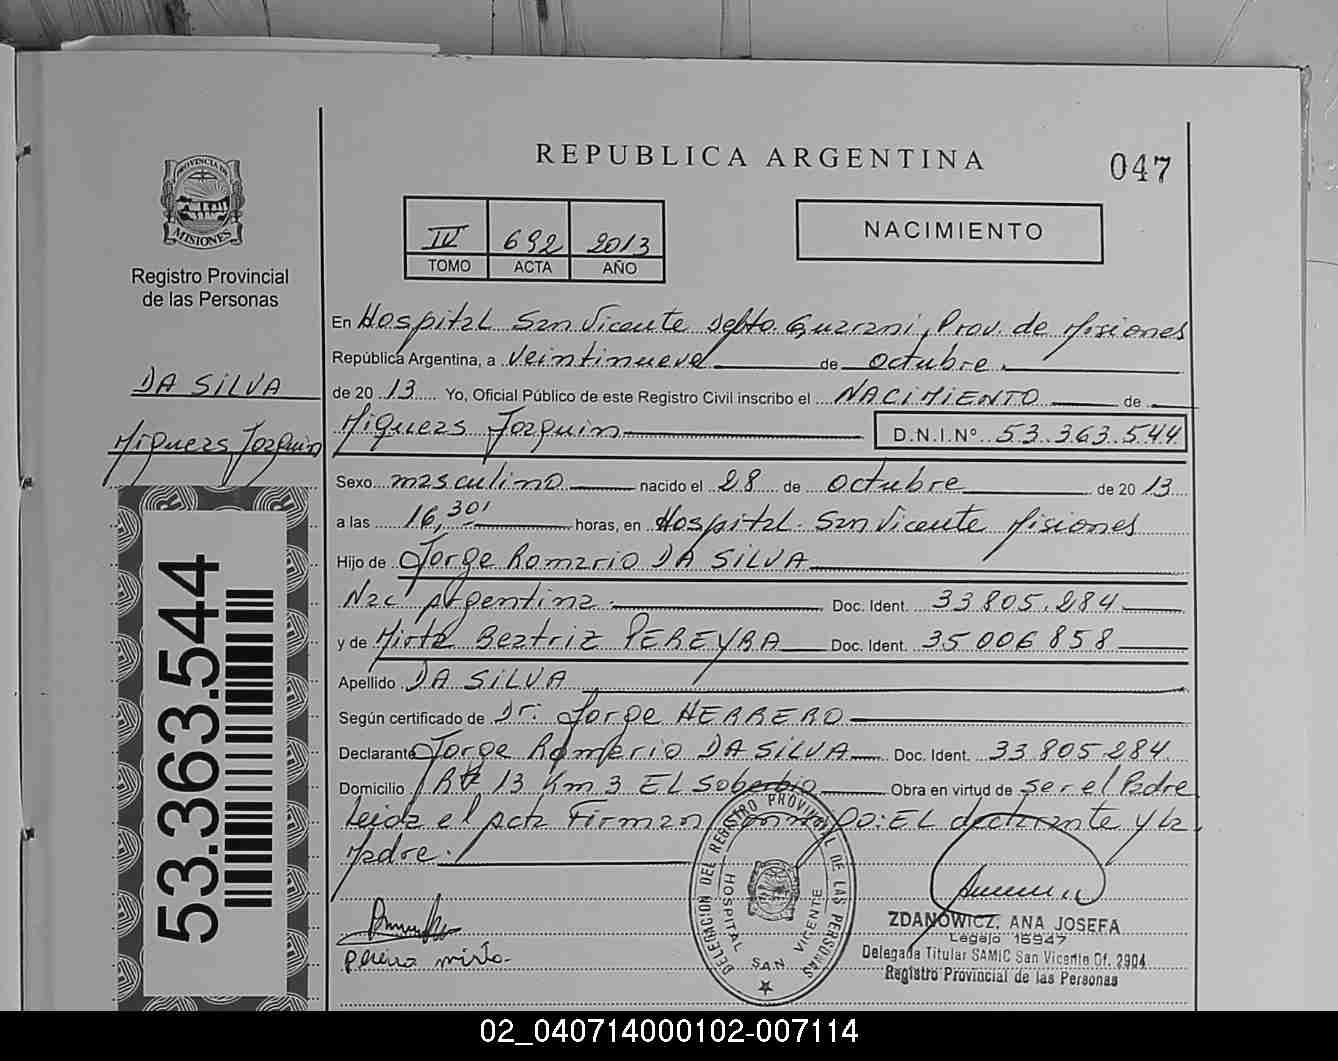 REPUBLICA ARGENTINA
047
PROVINCIA DE
MISIONES
Registro Provincial
de las Personas
IV 692 2013
TOMO ACTA AÑO
NACIMIENTO
DA SILVA
Miqueas Joaquin
53.363.544
En Hospital San Vicente Depto. Guarani, Prov. de Misiones
República Argentina, a veintinueve de octubre
de 20 13 Yo, Oficial Público de este Registro Civil inscribo el NACIMIENTO de
Miqueas Joaquin D.N.I.Nº 53.363.544
Sexo masculino nacido el 28 de octubre de 20 13
a las 16,30' horas, en Hospital San Vicente Misiones
Hijo de Jorge Romario DA SILVA
Nac Argentina. Doc. Ident. 33.805.284
y de Mirta Beatriz PEREYRA Doc. Ident. 35 006 858
Apellido DA SILVA
Según certificado de Dr. Jorge HERRERO
Declarante Jorge Romerio DA SILVA Doc. Ident. 33.805.284
Domicilio Rta 13 Km 3 EL Soberbio Obra en virtud de ser el Padre
Leida el acta Firman EL declarante y la
Madre.
pereira mirta
DELEGACION DEL REGISTRO PROVINCIAL DE LAS PERSONAS
HOSPITAL SAN VICENTE
ZDANOWICZ, ANA JOSEFA
Legajo 15947
Delegada Titular SAMIC San Vicente Of. 2904
Registro Provincial de las Personas
02_040714000102-007114